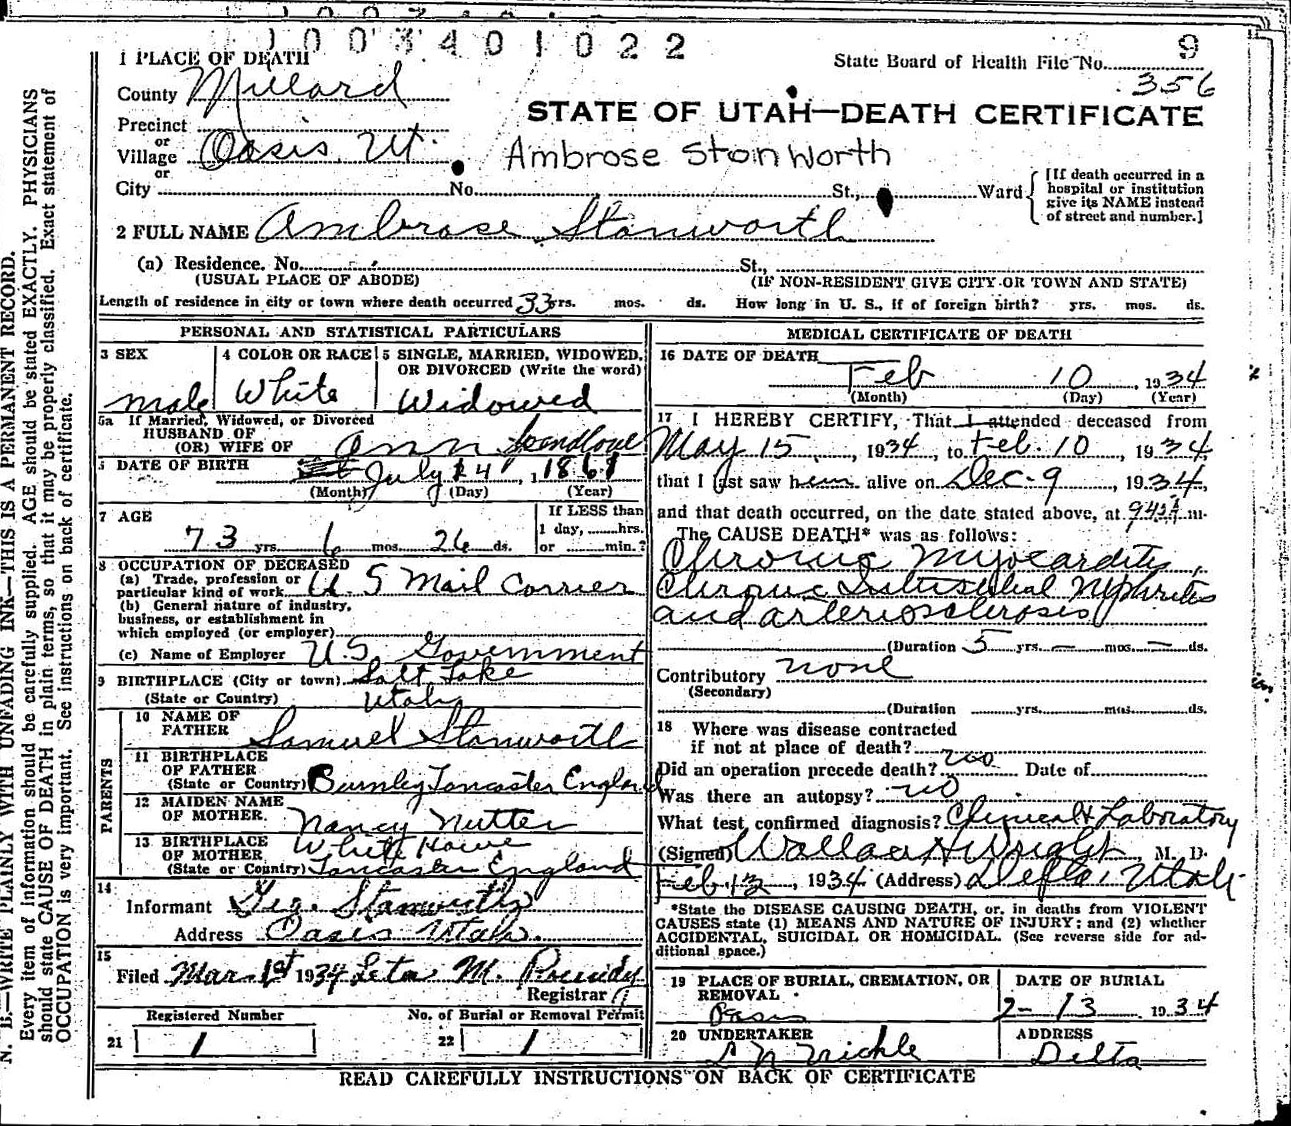 1003401022
9
1 PLACE OF DEATH
State Board of Health File No. 356
County Millard
STATE OF UTAH—DEATH CERTIFICATE
Precinct
or
Village Oasis, Ut.
Ambrose Stanworth
or
City No. St., Ward
[If death occurred in a
hospital or institution
give its NAME instead
of street and number.]
2 FULL NAME Ambrose Stanworth
(a) Residence. No. St.,
(USUAL PLACE OF ABODE) (IF NON-RESIDENT GIVE CITY OR TOWN AND STATE)
Length of residence in city or town where death occurred 33 yrs. mos. ds. How long in U. S., if of foreign birth? yrs. mos. ds.
PERSONAL AND STATISTICAL PARTICULARS
3 SEX
male
4 COLOR OR RACE
White
5 SINGLE, MARRIED, WIDOWED,
OR DIVORCED (Write the word)
Widowed
5a If Married, Widowed, or Divorced
HUSBAND OF
(OR) WIFE OF Ann
DATE OF BIRTH July 14
(Month) (Day) (Year)
7 AGE
73 yrs. 6 mos. 26 ds.
If LESS than
1 day, hrs.
or min.?
8 OCCUPATION OF DECEASED
(a) Trade, profession or
particular kind of work U. S Mail Carrier
(b) General nature of industry,
business, or establishment in
which employed (or employer)
(c) Name of Employer U.S. Government
9 BIRTHPLACE (City or town) Salt Lake
(State or Country) Utah
PARENTS
10 NAME OF
FATHER Samuel Stanworth
11 BIRTHPLACE
OF FATHER
(State or Country) Burnley Lancaster England
12 MAIDEN NAME
OF MOTHER. Nancy Nutter
13 BIRTHPLACE
OF MOTHER
(State or Country) Lancaster England
14
Informant Geo. Stanworth
Address Oasis Utah.
15
Filed Mar. 1st 1934 Leta M.
Registrar
Registered Number
21 1
No. of Burial or Removal Permit
22 1
MEDICAL CERTIFICATE OF DEATH
16 DATE OF DEATH
Feb 10, 1934
(Month) (Day) (Year)
17 I HEREBY CERTIFY, That I attended deceased from
May 15, 1934, to Feb. 10, 1934,
that I last saw him alive on Dec. 9, 1934,
and that death occurred, on the date stated above, at m.
The CAUSE DEATH* was as follows:
Chronic Myocarditis,
Chronic Interstitial Nephritis
and arteriosclerosis
(Duration 5 yrs. — mos. — ds.
Contributory none
(Secondary)
(Duration yrs. mos. ds.
18 Where was disease contracted
if not at place of death?
Did an operation precede death? no Date of
Was there an autopsy? no
What test confirmed diagnosis? Clinical & Laboratory
(Signed) Wallace H Wright, M. D.
Feb. 13, 1934 (Address) Delta, Utah.
*State the DISEASE CAUSING DEATH, or, in deaths from VIOLENT
CAUSES state (1) MEANS AND NATURE OF INJURY; and (2) whether
ACCIDENTAL, SUICIDAL OR HOMICIDAL. (See reverse side for ad-
ditional space.)
19 PLACE OF BURIAL, CREMATION, OR
REMOVAL
Oasis
DATE OF BURIAL
2-13 1934
20 UNDERTAKER
ADDRESS
Delta
READ CAREFULLY INSTRUCTIONS ON BACK OF CERTIFICATE
N. B.—WRITE PLAINLY WITH UNFADING INK—THIS IS A PERMANENT RECORD.
Every item of information should be carefully supplied. AGE should be stated EXACTLY. PHYSICIANS
should state CAUSE OF DEATH in plain terms, so that it may be properly classified. Exact statement of
OCCUPATION is very important. See instructions on back of certificate.